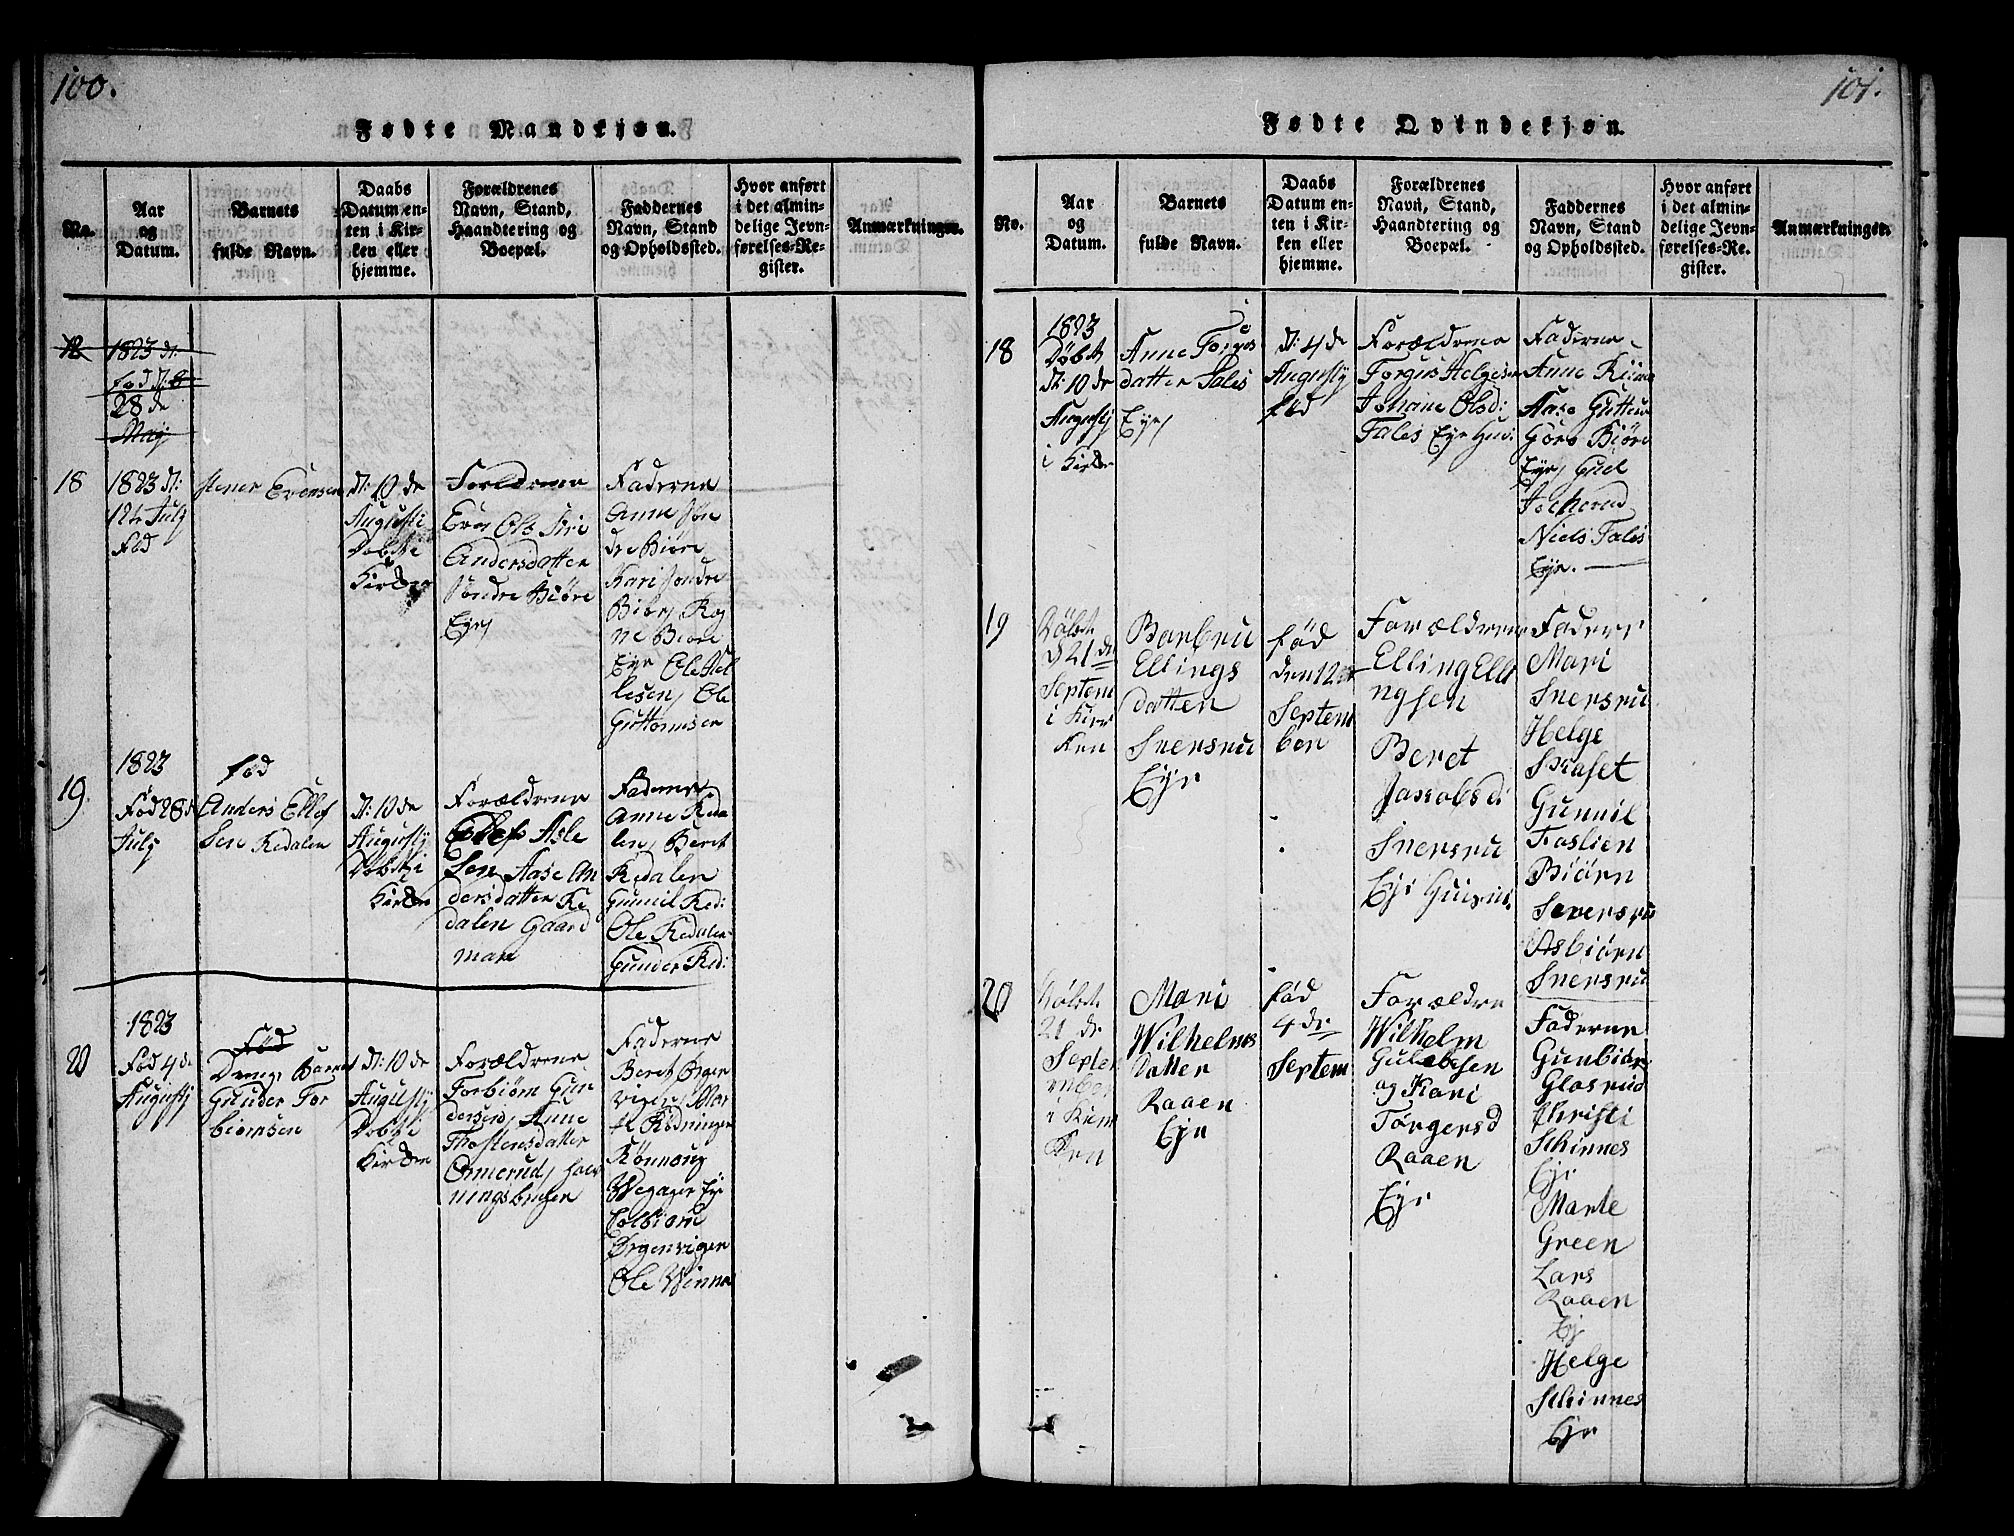 100.
Fødte Mandkjøn.
No.
Aar
og
Datum.
Barnets
fulde Navn.
Daabs
Datum en-
ten i Kir-
ken eller
hjemme.
Forældrenes
Navn, Stand,
Haandtering og
Boepæl.
Faddernes
Navn, Stand
og Opholdssted.
Hvor anført
i det almin-
delige Jevn-
førelses-Re-
gister.
Anmærkninger.
1823 d:
fød d:
28 de
May
18
1823 d:
12 July
Fød
stener Evensen
d: 10 de
Augusti
Døbt i
Kirken
Forældrene
Even Ols
Andersdatter
Søndre Biøre
Eyr
Faderne
Anne søn
dre Biøre
Kari søndre
Biør Rog
ne Biøre
Eye Ole Hel
lesen Ole
Guttormsen
19.
1823
Fød 28 d
July
fød
Anders Ellef
Sen Redalen
d: 10 de
Augusty
Døbt i
Kirken
Forældrene
Ellef Asle
Sen Aase An
dersdatter Re
dalen Gaard
man
Faderne
Anne Reda
len, Beret
Redalen
Gunnil Red:
Ole Redalen
Gunder Red:
20
1823
Fød 4 de
Augusty
Fød
Drenge Barnet
Gunder Tor
biørnsen
d: 10 de
Augusty
Døbt i
Kirken
Forældrene
Torbiørn Gun
dersen, Anne
Thostensdatter
Ormerud,
nings bruger
Faderne
Beret Ørgen
vigen, Mar
it Rødningen
Rønnoug
Wegager Eje
Colbiørn
Ørgenvigen
Ole Winna
101.
Fødte Qvindekjøn.
No.
Aar
og
Datum.
Barnets
fulde Navn.
Daabs
Datum en-
ten i Kir-
ken eller
hjemme.
Forældrenes
Navn, Stand,
Haandtering og
Boepæl.
Faddernes
Navn, Stand
og Opholdssted.
Hvor anført
i det almin-
delige Jevn-
førelses-Re-
gister.
Anmærkninger.
18
1823
Døbt
d: 10 de
Augusty
i Kirken
Anne Torges
datter Fales
Eye
d: 4 de
Augusty
fød
Forældrene
Torgus Helgesen
Johane Olsd:
Fales Eye Hus:
Faderne
Anne
Aase Guttorm
Goro Biøre
Eye, Gul
Niels Fales
Eye.
19
Døbt
d 21 de
Septem
i Kir
ken
Barbru
Ellings
datter
Snersru
Eye
fød
den 12 de
Septem
ber
Forældrene
Elling Elli
ngsen
Beret
Jacobsd:
Snersru
Eye Husm.
Fadere
Mari
Snersru
Helge
Skaset
Gunnil
Foslien
Biørn
Snersru
Asbiørn
Snersru
20
Døbt
21 de
Septe
mber
i Kir
ken
Mari
Wilhelms
Datter
Raaen
Eje
fød
4 de
Septem
Forældre
Wilhelm
Gulabesen
og Kari
Torgersd
Raaen
Eye
Faderne
Gunbiør
Glasrud
Christi
Skinnes
Eje
Marte
Green
Lars
Raaen
Ej
Helge
Skinnes
Eje